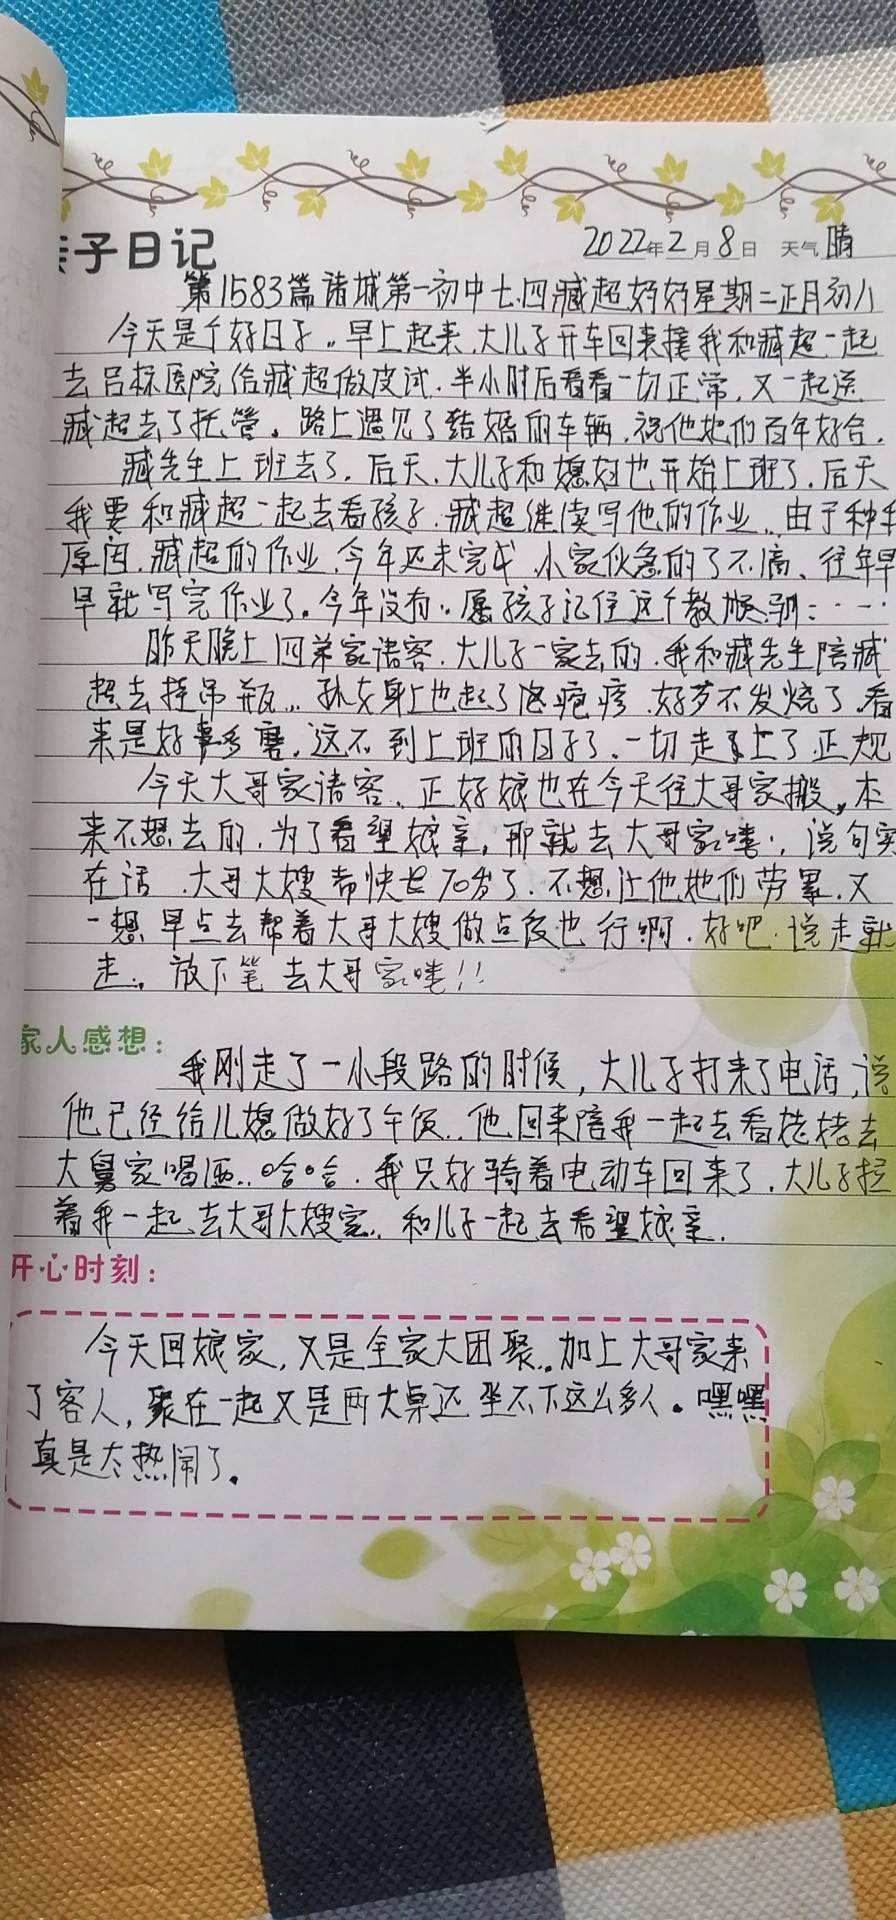 子日记
2022年2月8日 天气 晴
第1583篇诸城第一初中七.四臧超妈妈星期二正月初八
今天是个好日子。早上起来,大儿子开车回来接我和臧超一起
去吕标医院给臧超做皮试.半小时后看看一切正常,又一起送
臧超去了托管。路上遇见了结婚的车辆.祝他她们百年好合.
臧先生上班去了.后天.大儿子和媳妇也开始上班了.后天
我要和臧超一起去看孩子.臧超继续写他的作业..由于种种
原因.臧超的作业.今年还未完成.小家伙急的了不滴、往年早
早就写完作业了。今年没有..愿孩子记住这个教训:……
昨天晚上四弟家请客.大儿子一家去的.我和臧先生陪臧
超去挂吊瓶...孙女身上也起了泡疱疹.好歹不发烧了.看
来是好事多磨.这不到上班的日子了.一切走上了正规
今天大哥家请客、正好娘也在今天往大哥家搬,本
来不想去的.为了看望娘亲.那就去大哥家喽..说句实
在话.大哥大嫂都快七70岁了.不想让他她们劳累.又
一想早点去帮着大哥大嫂做点饭也行啊.好吧.说走就
走.放下笔去大哥家喽!!
家人感想:
我刚走了一小段路的时候,大儿子打来了电话,说
他已经给儿媳做好了午饭..他回来陪我一起去看姥姥去
大舅家喝酒..哈哈.我只好骑着电动车回来了.大儿子拉
着我一起去大哥大嫂家..和儿子一起去看望娘亲.
开心时刻:
今天回娘家,又是全家大团聚..加上大哥家来
了客人,聚在一起又是两大桌还坐不下这么多人。嘿嘿
真是太热闹了。